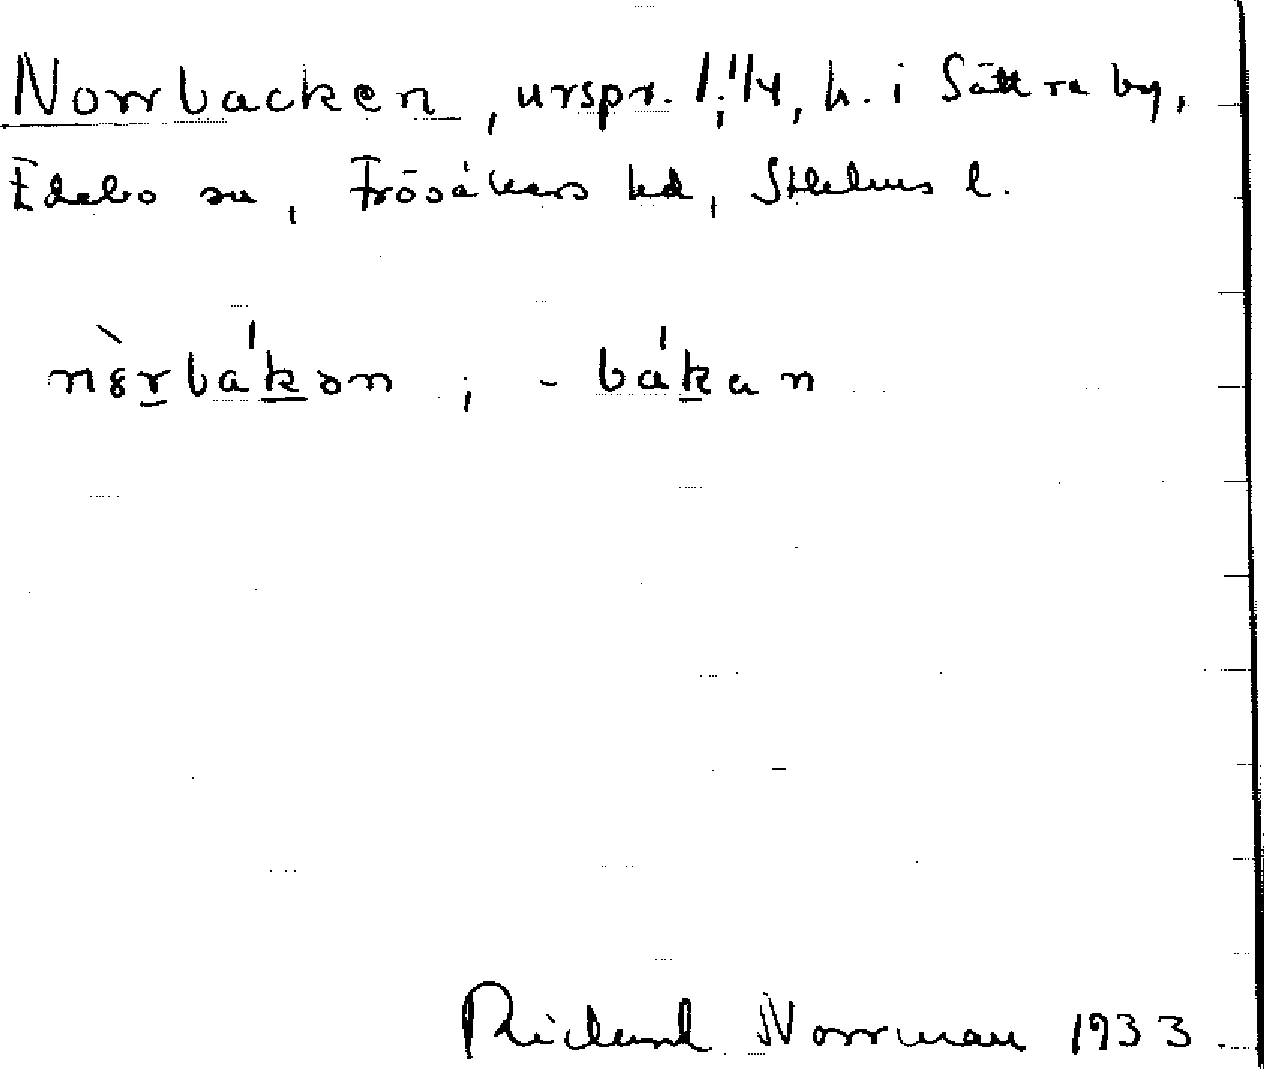 Norrbacken, urspr. h. i Sättra by,
Edebo sn, Frösåkers hd, Sthlms l.
nòrbákən ; - bákan
Rickard Norrman 1933